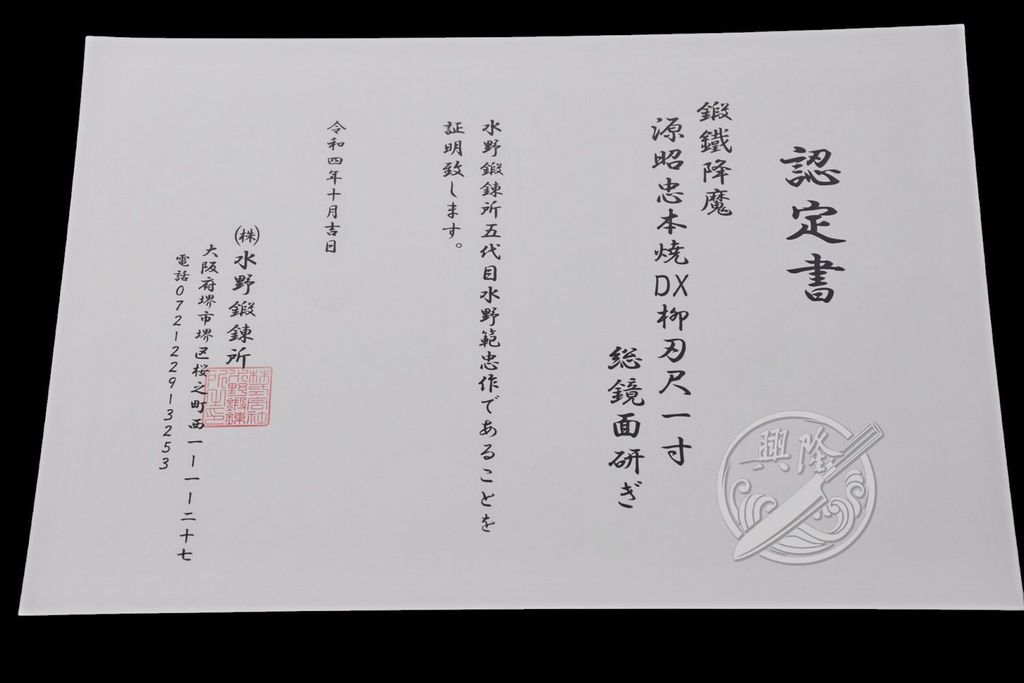 認定書
鍛鐵降魔
源昭忠本焼DX柳刃尺一寸
総鏡面研ぎ
水野鍛錬所五代目水野範忠作であることを
証明致します。
令和四年十月吉日
㈱水野鍛錬所
大阪府堺市堺区桜之町西一ー一ー二十七
電話0722293253
株式会社
水野鍛錬
所之印
興隆